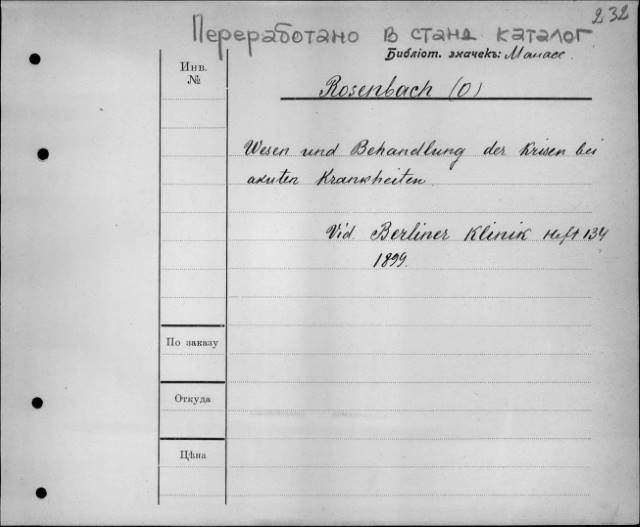 232
Переработано в станд каталог
Библіот. значекъ: Манасс.
Инв. №
Rosenbach (O)
Wesen und Behandlung der Krisen bei
akuten Krankheiten.
Vid. Berliner Klinik Heft 134
1899.
По заказу
Откуда
Цѣна